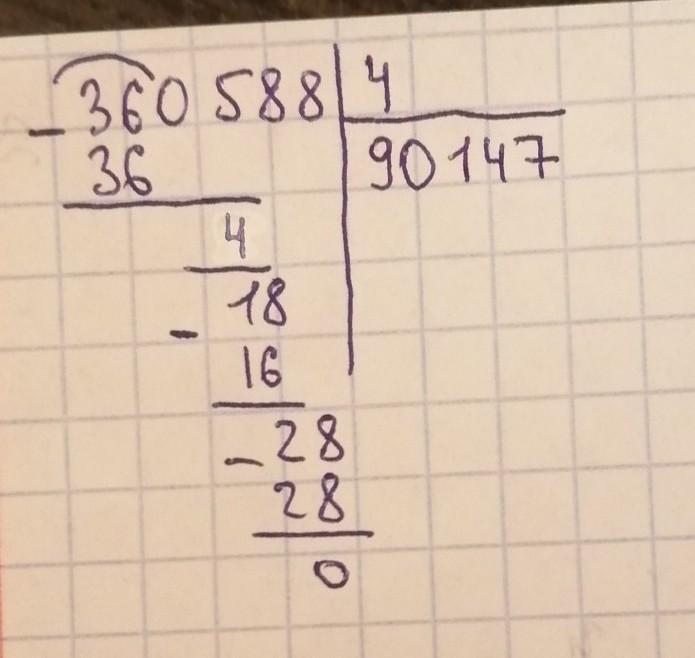 - 360 588 | 4
36 | 90 147
4
- 18
16
- 28
28
0